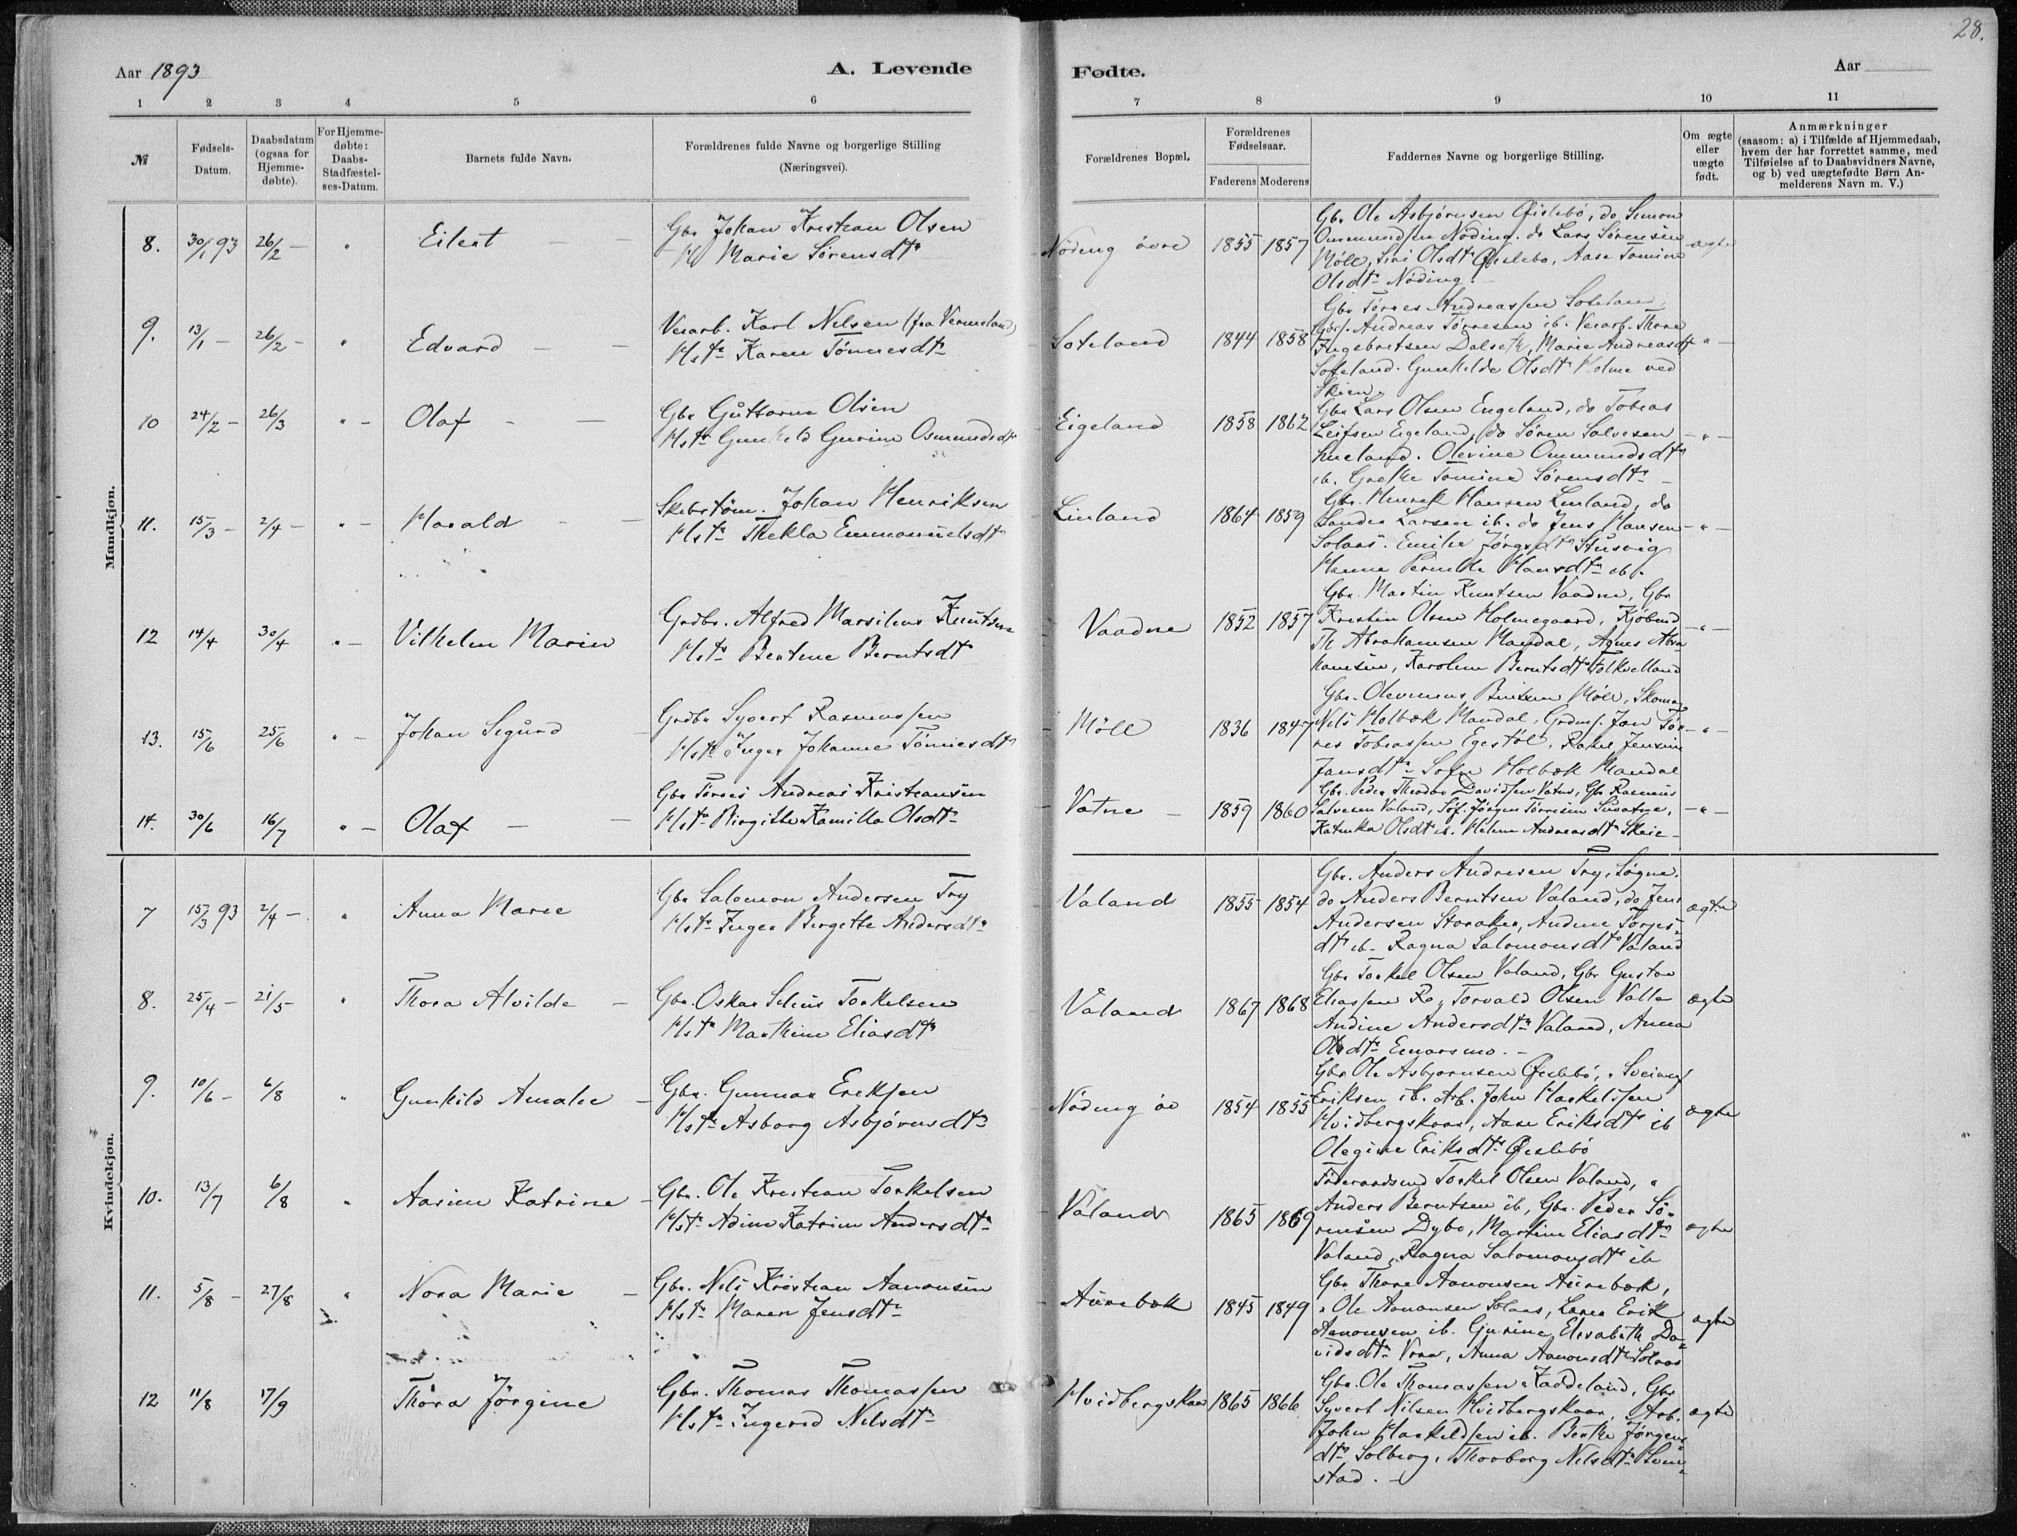 28.
Aar 1893
A. Levende
Fødte.
Aar
1 2 3 4 5 6 7 8 9 10 11
№
Fødsels-
Datum.
Daabsdatum
(ogsaa for
Hjemme-
døbte).
For Hjemme-
døbte:
Daabs-
Stadfæstel-
ses-Datum.
Barnets fulde Navn.
Forældrenes fulde Navne og borgerlige Stilling
(Næringsvei).
Forældrenes Bopæl.
Forældrenes
Fødselsaar.
Faderens Moderens
Faddernes Navne og borgerlige Stilling.
Om ægte
eller
uægte
født.
Anmærkninger
(saasom: a) i Tilfælde af Hjemmedaab,
hvem der har forrettet samme, med
Tilføielse af to Daabsvidners Navne,
og b) ved uægtefødte Børn An-
melderens Navn m. V.)
Mandkjøn.
8. 30/1 93 26/2 — " Eilert — —
Gbr Johan Kristian Olsen
H Marie Sørensdtr
Nöding övre 1855 1857
Gbr Ole Asbjørnsen Øislebö, do Simon
Ommundsen Nöding. do Lars Sørensen
Möll, Siri Olsdtr Øislebö, Aase Tomine
Olsdtr Nöding.
ægte
9. 13/1 — 26/2 — " Edvard — —
Verarb. Karl Nilsen (fra Vermeland)
Hstr Karen Tönnesdtr
Soteland 1844 1858
Gbr Tørres Andreassen Soteland,
Andreas Tørresen ib. Verarb. Thore
Ingebretsen Dalseth, Marie Andreasdtr
Soteland. Gunhilde Olsdtr Holme ved
Skien.
— " —
10 24/2 — 26/3 " — Olaf — —
Gbr Guttorm Olsen
Hstr Gunhild Gurine Osmundsdtr
Eigeland 1858 1862
Gbr Lars Olsen Engeland, do Tobias
Leifsen Eigeland, do Søren Salvesen
Olevine Ommundsdtr
ib. Grethe Tomine Sørensdtr —
— " —
11. 15/3 — 2/4 — " — Harald — —
Skibstöm. Johan Henriksen
Hstr Thekla Emmanuelsdtr
Linland 1864 1859
Gbr. Henrik Hansen Linland, do
Sander Larsen ib. do Jens Hansen
Solaas. Emilie Jörgsdtr Stusvig
Hanne Pernille Hansdtr ib.
— " —
12 14/4 30/4 " — Vilhelm Marin
Grdbr. Alfred Marsilius Knutsen
Hstr Bertine Berntsdtr
Vaadne 1852 1857
Gbr. Martin Knutsen Vaadne, Gbr
Kristin Olsen Holmegaard, Kjöbmd
Th Abrahamsen Mandal, Agnes Abra
hamsen, Karoline Berntsdtr Holkvelland
— " —
13. 15/6 25/6 " — Johan Sigurd —
Grdbr Syvert Rasmussen
Hstr Inger Johanne Tönnesdtr
Möll 1836 1847
Gbr. Olevinus Berntsen Möll, Skomag
Nils Holbæk Mandal, Grdmf. Jan Tör
res Tobiassen Egestöl. Rakel Jensine
Jansdtr Sofie Holbæk Mandal
— " —
14. 30/6 16/7 " — Olaf — —
Gbr Tørres Andreas Kristiansen
Hstr Birgitte Kamilla Olsdtr
Vatne — 1859 1860
Gbr. Peder Theodor Davidsen Vatne, Gbr Rasmus
Salvesen Valand, Söf. Jörgen Tørresen
Katinka Olsdtr ib. Helene Andreasdtr Skeie —
— " —
Kvindekjøn.
7 15/3 93 2/4 — " Anna Marie
Gbr Salomon Andersen Try
Hstr Inger Birgitte Andersdtr
Valand 1855 1854
Gbr. Anders Andresen Try, Søgne.
do Anders Berntsen Valand, do Jens
Andersen Storaker, Andine Torjes-
dtr ib. Ragna Salomonsdtr Valand
ægte
8. 25/4 — 21/5 " Thora Alvilde —
Gbr. Oskar Selius Torkelsen
Hstr Marthine Eliasdtr
Valand 1867 1868
Gbr Torkel Olsen Valand, Gbr Gustav
Eliassen Ro, Torvald Olsen Valle
Andine Andersdtr Valand, Anna
Olsdtr Enarsmo. —
ægte
9. 10/6 — 6/8 " Gunhild Amalie —
Gbr. Gunnar Eriksen
Hstr Asborg Asbjörnsdtr
Nöding öv 1854 1855
Gbr Ole Asbjornsen Øislebö, " Sveinung
Eriksen ib. Arb. John Haskelssen
Hvidbergskaar, Aase Eriksdtr ib
Olegine Eriksdtr Øislebö
ægte
10. 13/7 6/8 " Aasine Katrine —
Gbr. Ole Kristian Torkelsen
Hstr Adine Katrine Andersdtr
Valand 1865 1869
Föderaadsmd Torkel Olsen Valand, "
Anders Berntsen ib, Gbr. Peder Sö-
rensen Dybo, Martine Eliasdtr
Valand, Ragna Salomonsdtr ib
ægte
11. 5/8 — 27/8 " Nora Marie —
Gbr. Nils Kristian Aanonsen
Hstr Maren Jensdtr
Aurebæk 1845 1849
Gbr Thore Aanonsen Aurebæk,
" Ole Aanonsen Solaas, Lærer Erik
Aanonsen ib. Gurine Elisabeth Da-
vidsdtr Vraa, Anna Aanonsdtr Solaas
ægte
12 11/8 17/9 Thora Jörgine
Gbr. Thomas Thomassen
Hstr Ingerid Nilsdtr
Hvidbergskaar 1865 1866
Gbr. Ole Thomassen Kaddeland, Gbr
Syvert Nilsen Hvidbergskaar, Arb.
John Haskeldsen ib. Berthe Jørgens
dtr Solberg, Thorborg Nilsdtr
stad. —
ægte